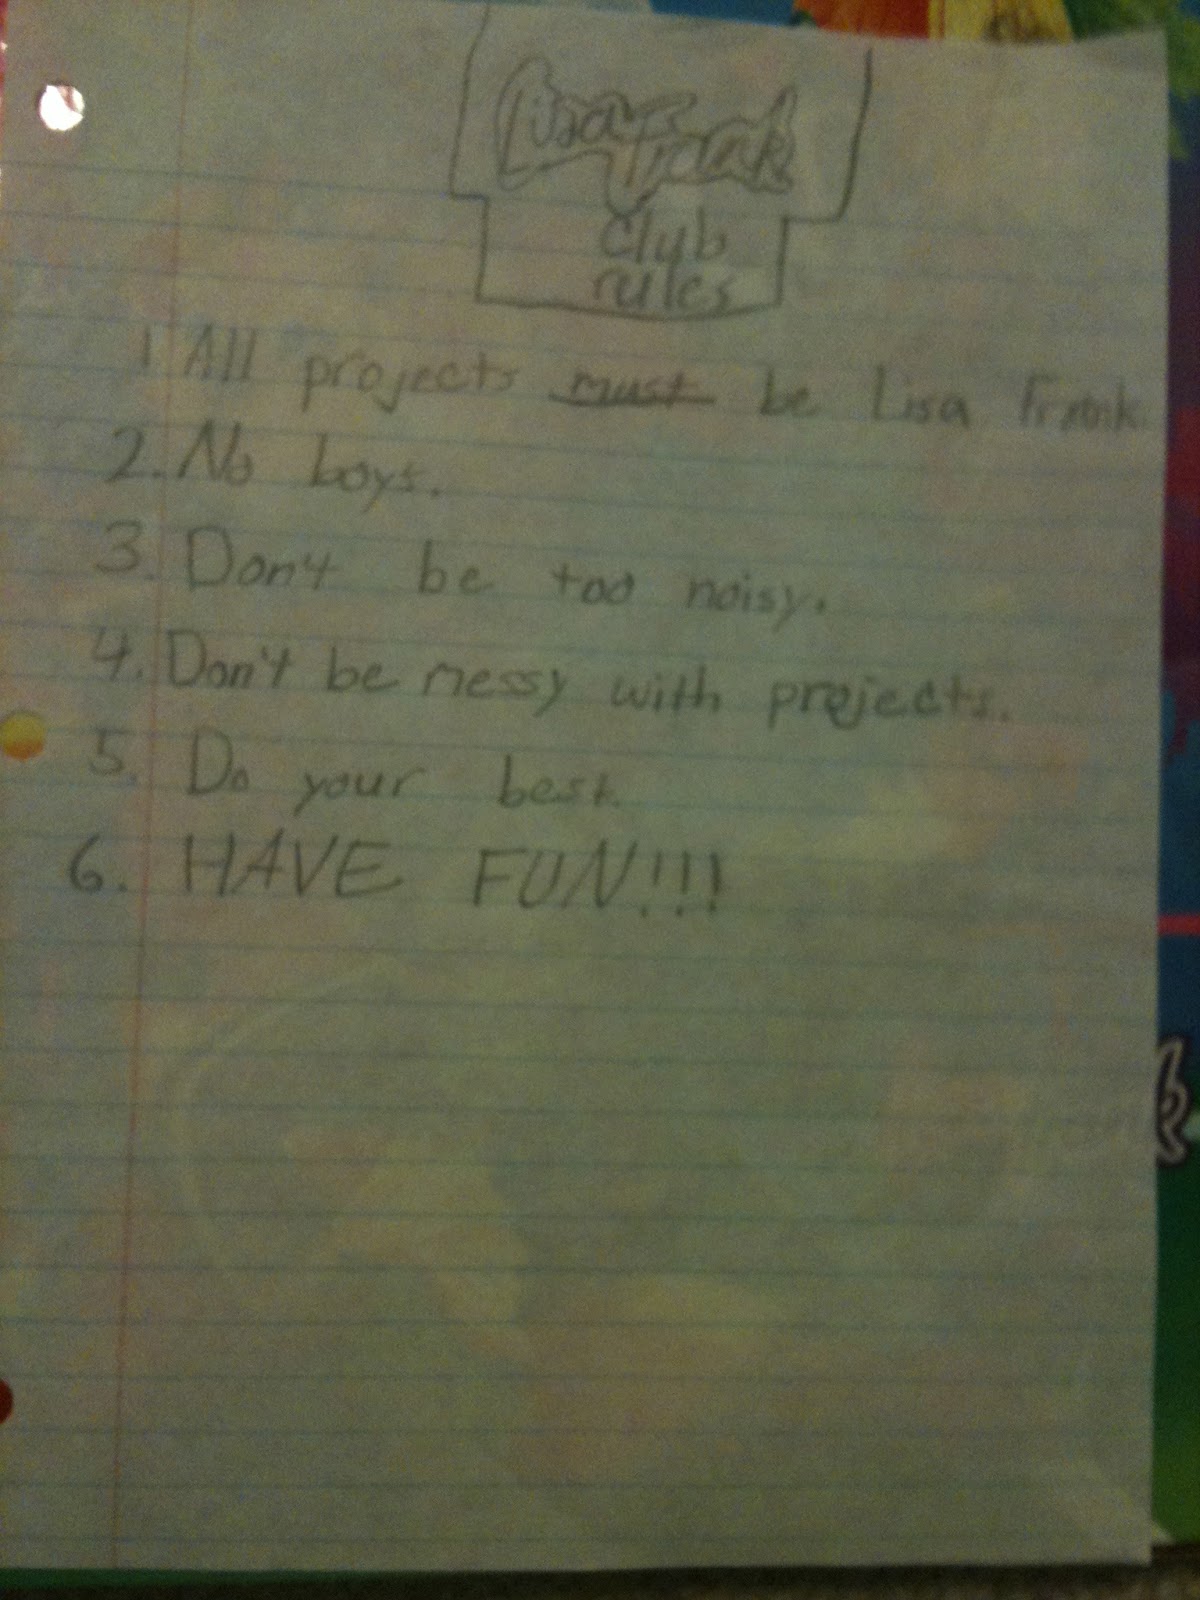 Lisa Frank
Club
rules
1. All projects must be Lisa Frank.
2. No boys.
3. Don't be too noisy.
4. Don't be messy with projects.
5. Do your best.
6. HAVE FUN!!!
k